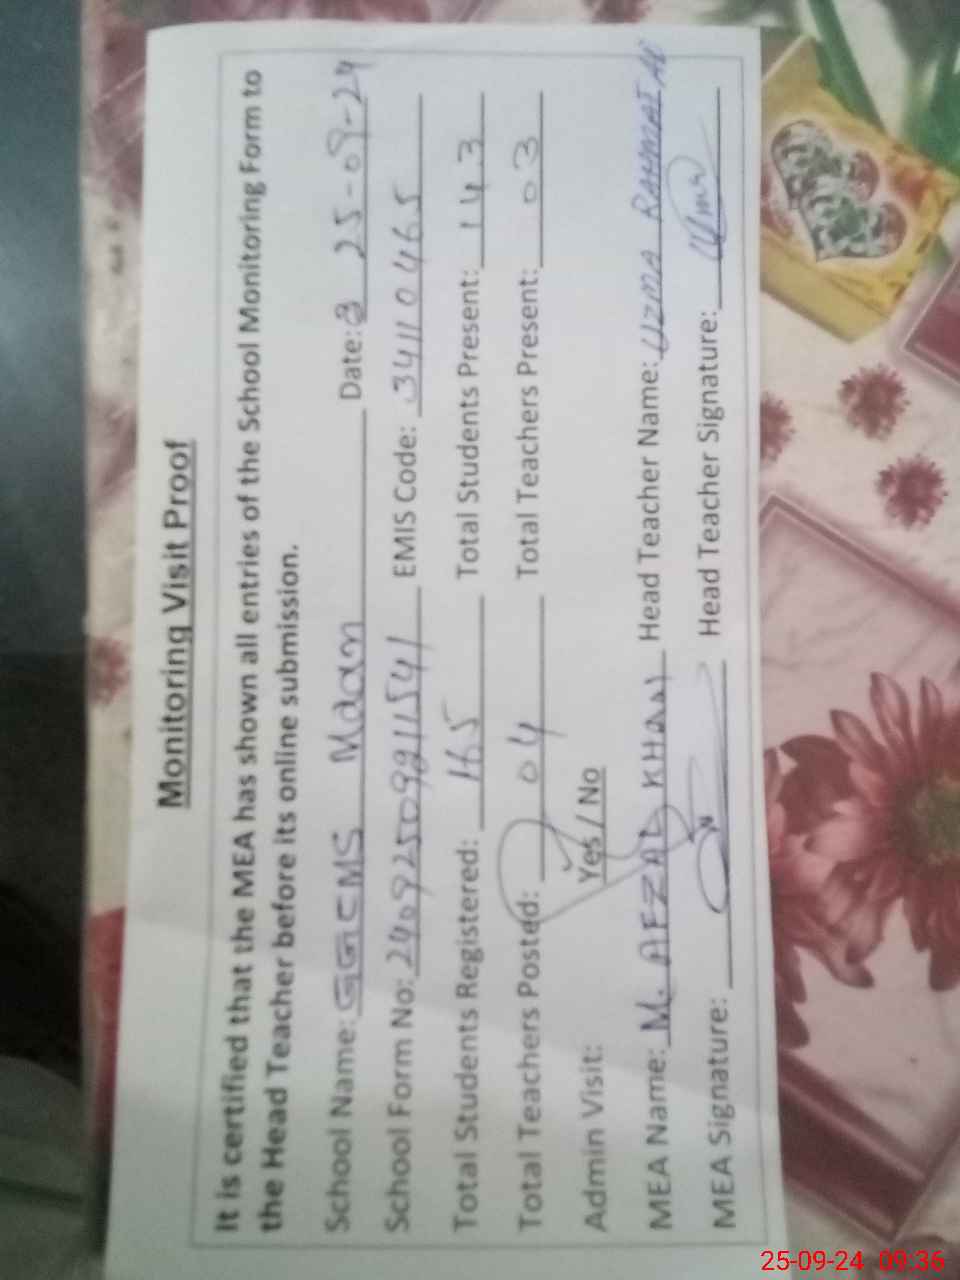 Monitoring Visit Proof
It is certified that the MEA has shown all entries of the School Monitoring Form to
the Head Teacher before its online submission.
School Name: GGCMS Maan Date: 25-09-24
School Form No: 240925099211541 EMIS Code: 34110465
Total Students Registered: 165 Total Students Present: 143
Total Teachers Posted: 04 Total Teachers Present: 03
Admin Visit: Yes / No
MEA Name: M. AFZAL KHAN Head Teacher Name: UZMA RAHMAT
MEA Signature: Head Teacher Signature:
25-09-24 09:36